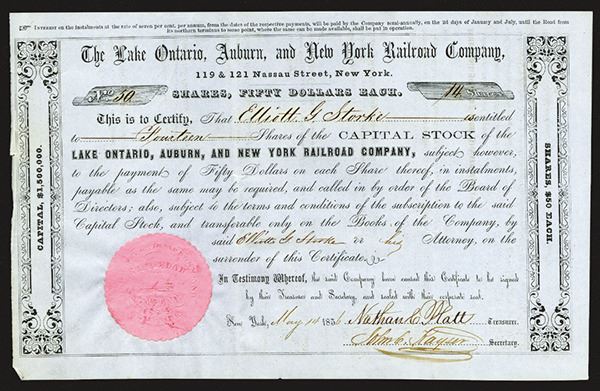 INTEREST on the Instalments at the rate of seven per cent, per annum, from the dates of the respective payments, will be paid by the Company semi-annually, on the 2d days of January and July, until the Road from
its northern terminus to some point, where the same can be made available, shall be put in operation.
The Lake Ontario, Auburn, and New York Railroad Company,
119 & 121 Nassau Street, New York.
No 50 SHARES, FIFTY DOLLARS EACH. 14 Shares
This is to Certify, That Elliott G. Storke is entitled
to Fourteen Shares of the CAPITAL STOCK of the
LAKE ONTARIO, AUBURN, AND NEW YORK RAILROAD COMPANY, subject however,
to the payment of Fifty Dollars on each Share thereof, in instalments,
payable as the same may be required, and called in by order of the Board of
Directors; also, subject to the terms and conditions of the subscription to the said
Capital Stock, and transferable only on the Books of the Company, by
said Elliott G Storke or his Attorney, on the
surrender of this Certificate.
In Testimony Whereof, the said Company have caused this Certificate to be signed
by their Treasurer and Secretary, and sealed with their corporate seal.
New York, May 14 1856 Nathan C Platt Treasurer.
Secretary.
CAPITAL, $1,500,000.
SHARES, $50 EACH.